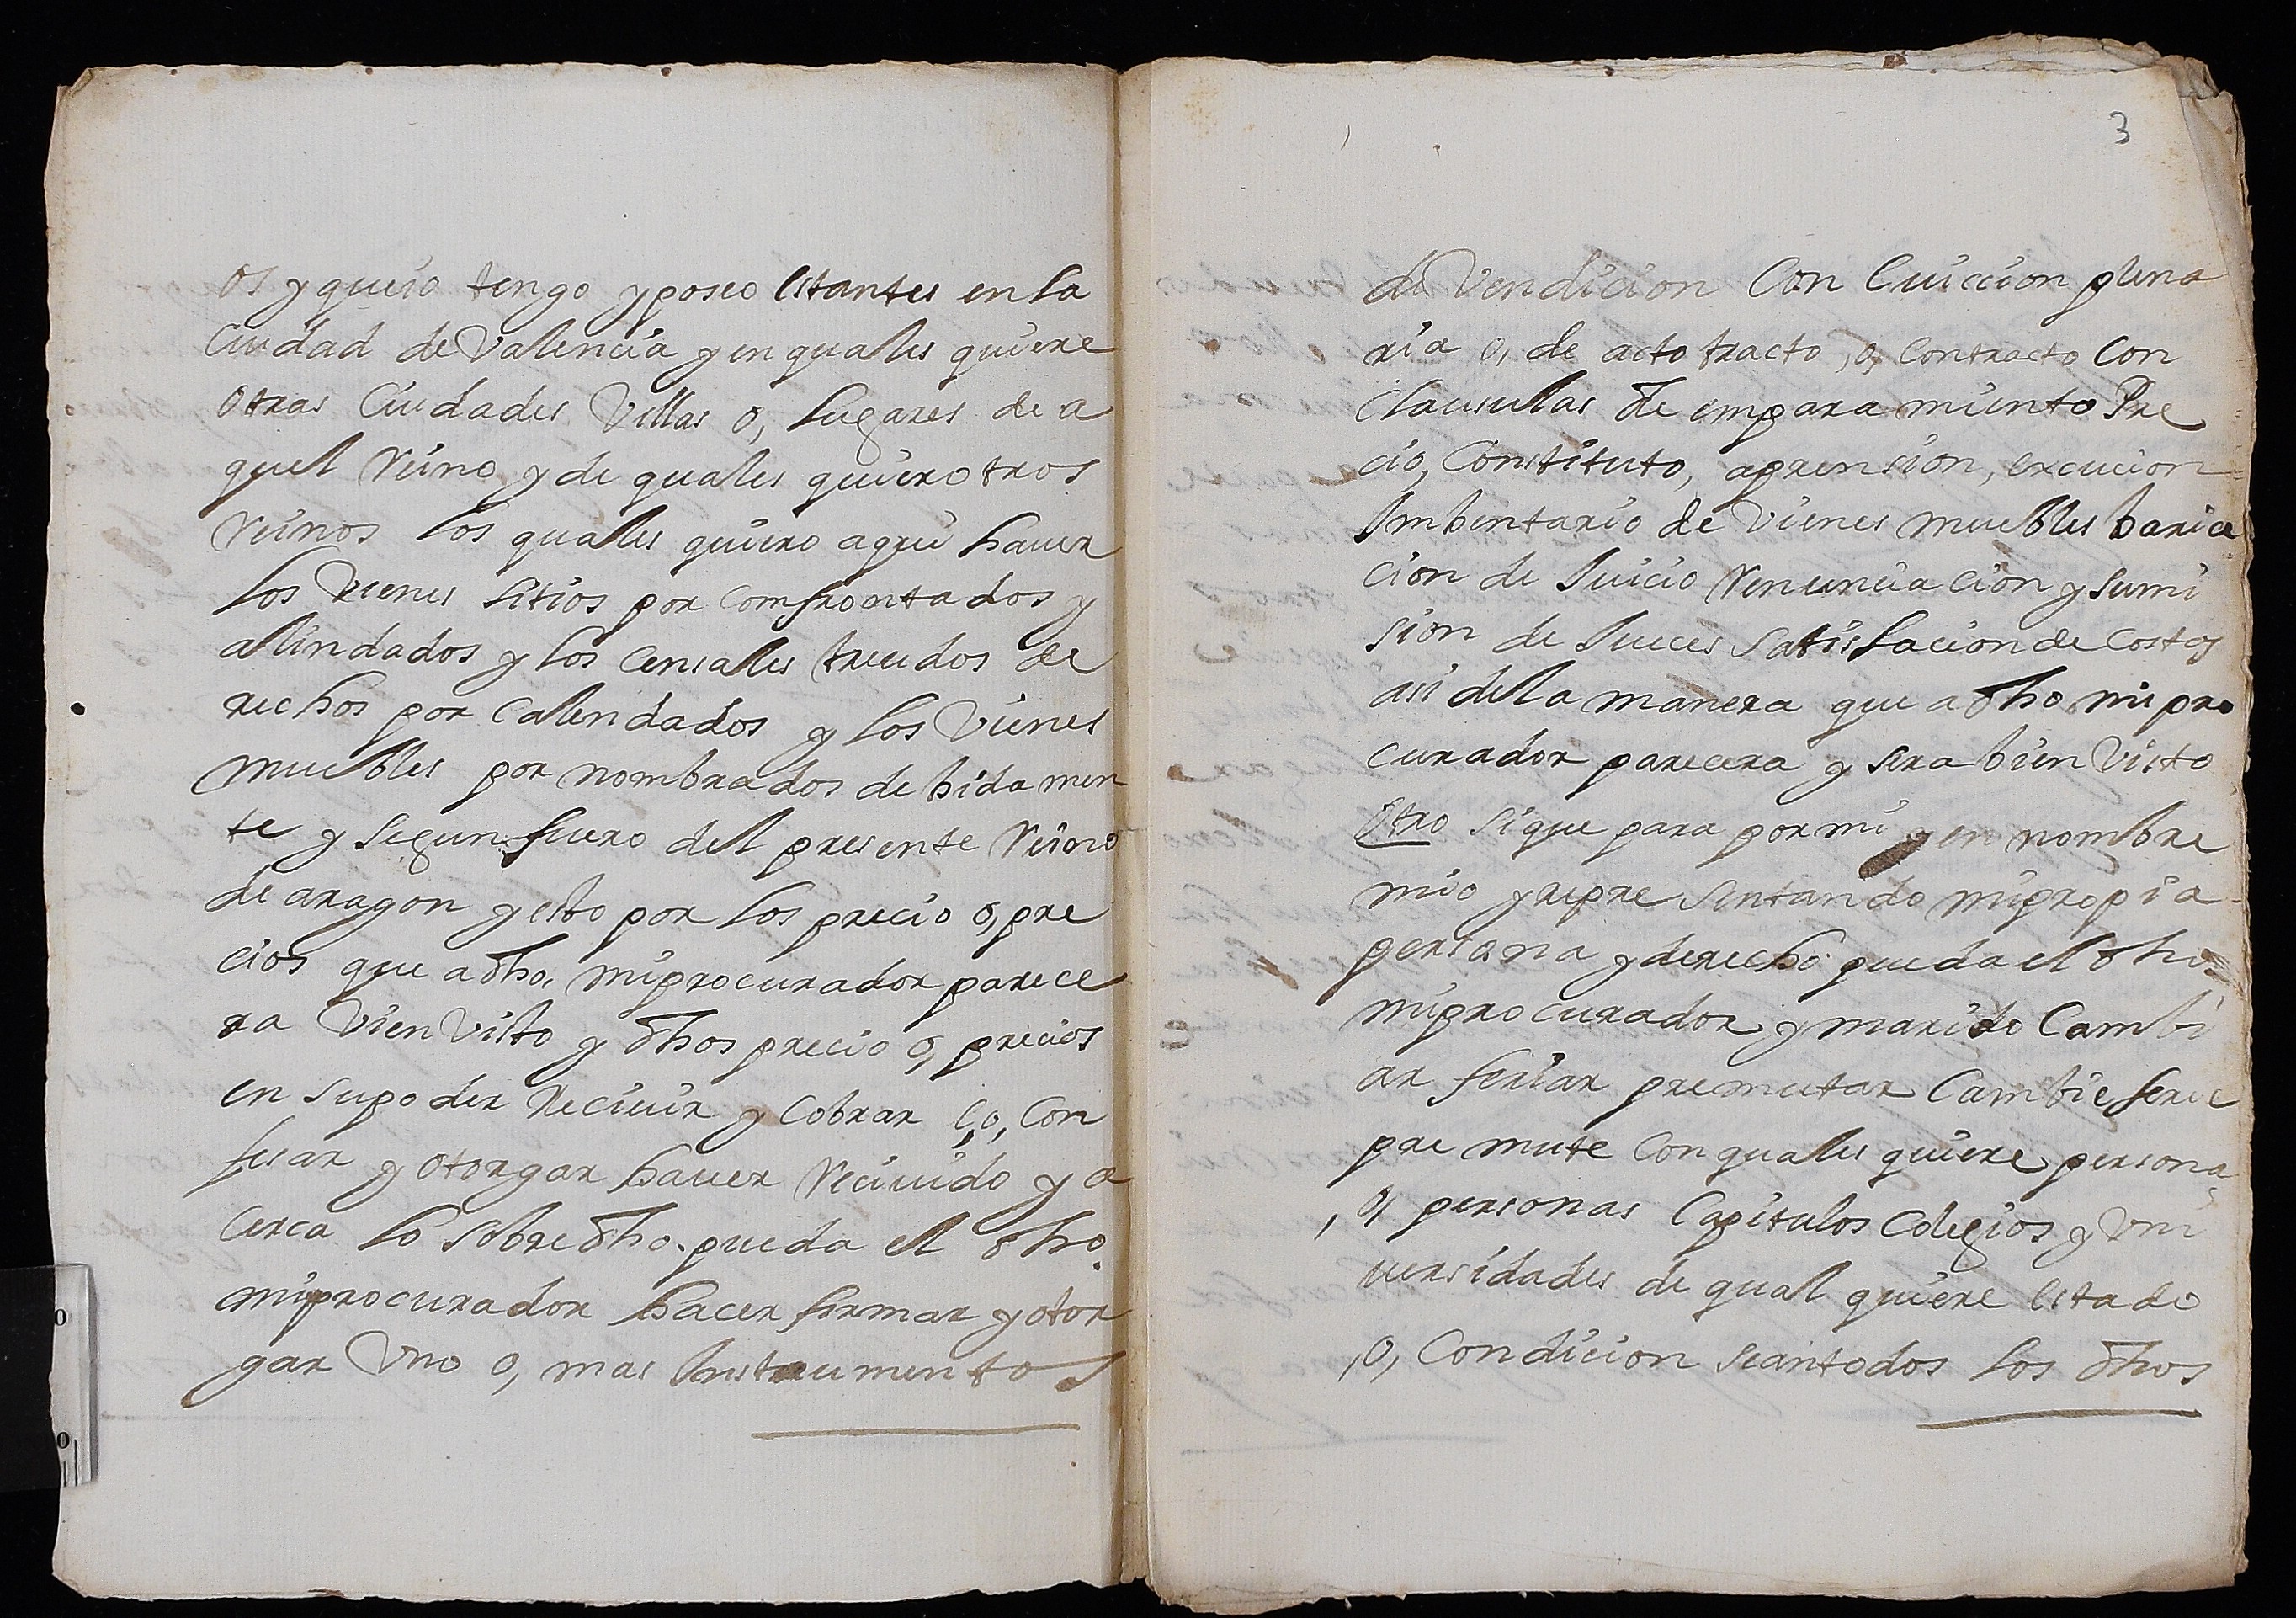 os y que io tengo y poseo estantes en la
Ciudad de Valencia y en quales quiere
otras Ciudades Villas o, lugares de a
quel Reino y de quales quiero tros
Reinos los quales quiero aqui hauer
los vienes sitios por comfrontados y
alindados y los Censales treudos de
rechos por Calendados y los Vienes
muebles por nombrados debidamen-
te y segun fuero del presente Reino
de aragon y esto por los precio o, pre
cios que a dho. mi procurador parece
ra Vien Visto y dhos precio o, precios
en su poder Reciuir y Cobrar e, o, Con
fesar y otorgar hauer Reciuido y a
cerca lo sobre dho. pueda el dho.
mi procurador hacer firmar y otor
gar Vno o, mas Instrumentos
3
de Vendicion Con Euiccion plena
ria o, de acto tracto, o, Contracto Con
Clausulas de emparamiento Pre
cio, Constituto, aprension, execucion
Imbentario de Vienes muebles baria
cion de Juicio Renunciacion y sumi
sion de Jueces Satisfacion de Costas
asi de la manera que a dho mi pro
curador parecera y sera bien Visto
Otro si que para por mi y en nombre
mio y repre sentando mi propia
persona y derecho pueda el dho
mi procurador y marido Cambi
ar feriar premutar Cambie ferie
pre mute Con quales quiere persona
, o, personas Capitulos Colegios y Vni
uersidades de qual quiere estado
, o, Condicion sean todos los dhos